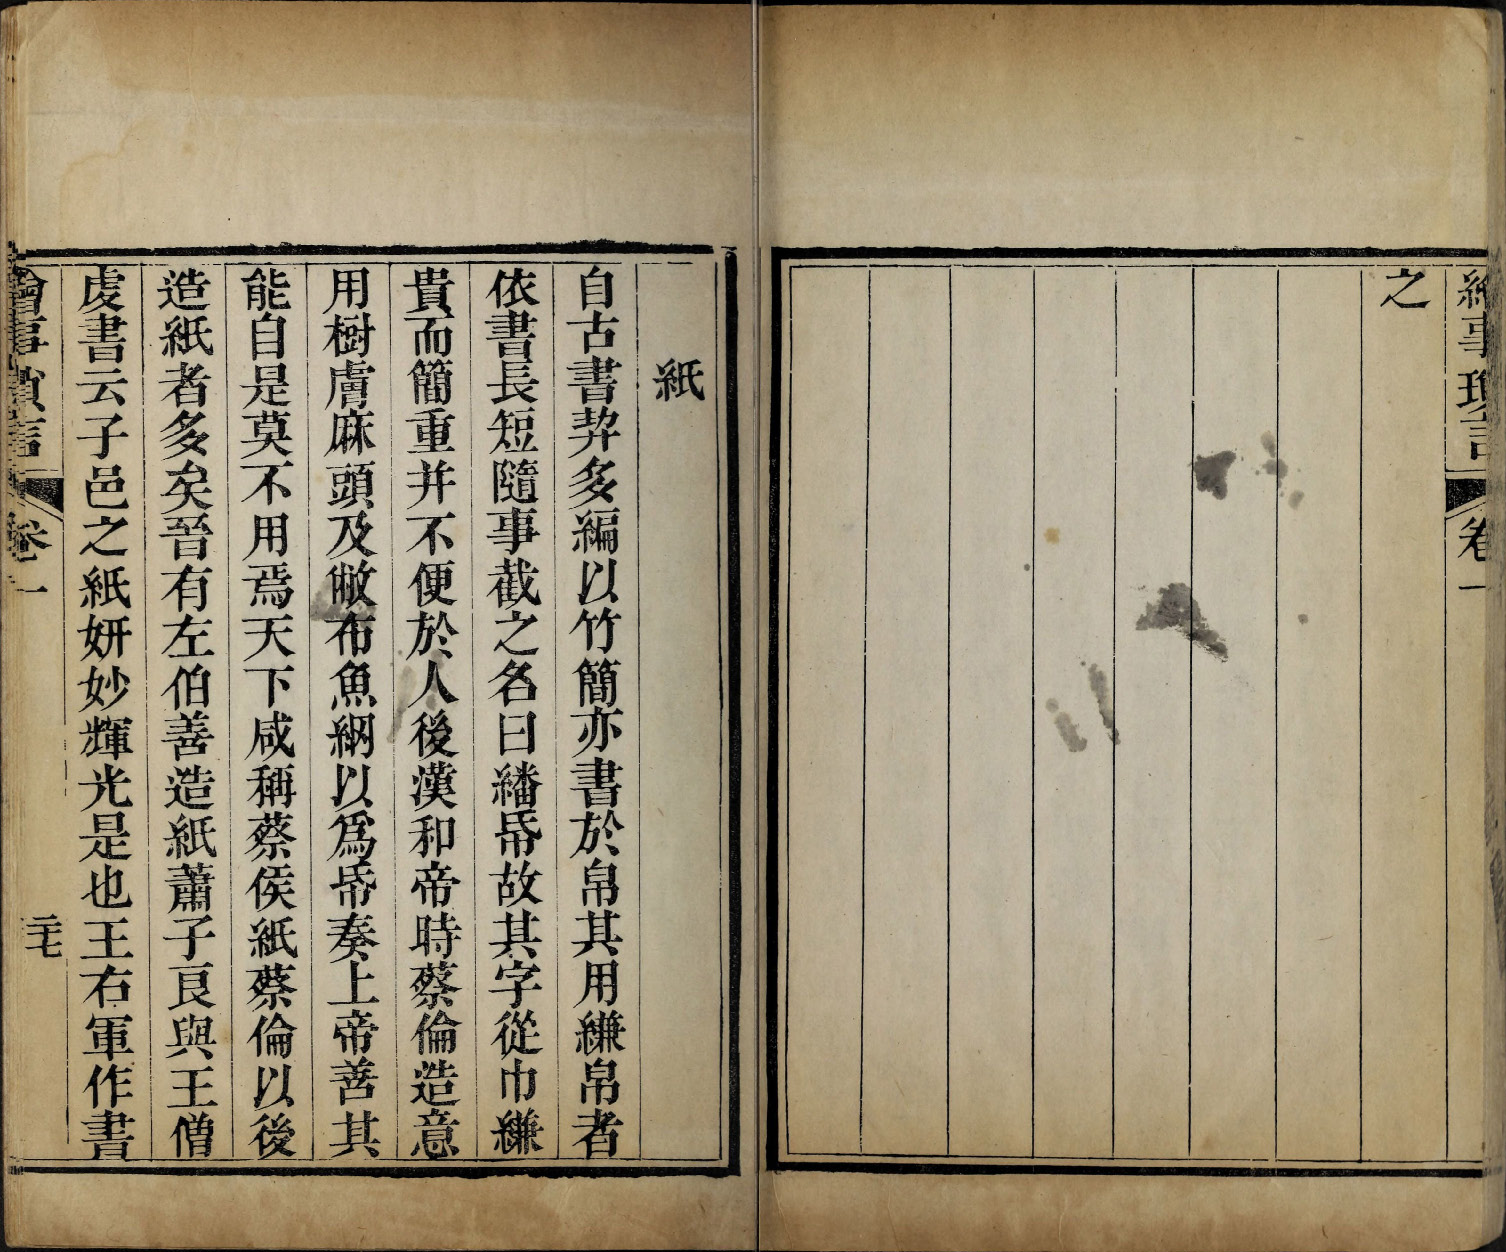 繪事瑣言 卷一
之
紙
自古書契多編以竹簡亦書於帛其用縑帛者
依書長短隨事截之名曰繙帋故其字從巾縑
貴而簡重并不便於人後漢和帝時蔡倫造意
用樹膚麻頭及敝布魚網以爲帋奏上帝善其
能自是莫不用焉天下咸稱蔡侯紙蔡倫以後
造紙者多矣晉有左伯善造紙蕭子良與王僧
虔書云子邑之紙妍妙輝光是也王右軍作書
繪事瑣言 卷一 二十七